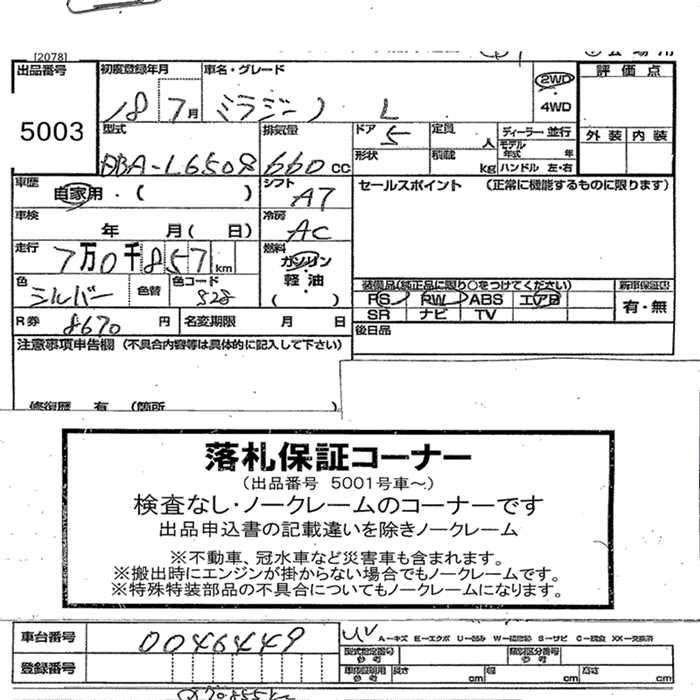 [2078]
出品番号 初度登録年月 車名・グレード 2WD 評価点
5003 18 7月 ミラジーノ L 4WD
型式 排気量 ドア 5 定員 人 ディーラー 並行 外装 内装
DBA-L650S 660 cc 形状 積載 kg モデル年式 年 ハンドル 左・右
車歴 自家用・( ) シフト AT セールスポイント (正常に機能するものに限ります)
車検 年 月( 日) 冷房 AC
走行 7万0千857km 燃料 ガソリン
軽油・( )
色 シルバー 色替 色コード S28 装備品(純正品に限り○をつけてください) 新車保証書
PS PW ABS エアB 有・無
R券 8670円 名変期限 月 日 SR ナビ TV
注意事項申告欄(不具合内容等は具体的に記入して下さい) 後日品
修復歴 有 (箇所 )
落札保証コーナー
(出品番号 5001号車～)
検査なし・ノークレームのコーナーです
出品申込書の記載違いを除きノークレーム
※不動車、冠水車など災害車も含まれます。
※搬出時にエンジンが掛からない場合でもノークレームです。
※特殊特装部品の不具合についてもノークレームになります。
車台番号 0046449 A－キズ E－エクボ U－凹み W－補修跡 S－サビ C－腐食 XX－交換済
型式指定番号 参考 類別区分番号 参考
登録番号 車庫証明用 参考 長さ cm 幅 cm 高さ cm